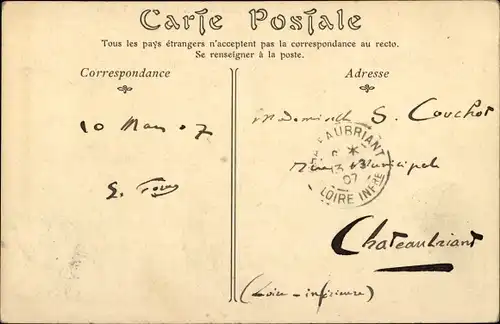 Carte Postale
Tous les pays étrangers n'acceptent pas la correspondance au recto.
Se renseigner à la poste.
Correspondance
Adresse
10 Mars 07
Mademoiselle S. Couchot
Municipale
Chateaubriant
(Loire-inférieure)
CHATEAUBRIANT
07
LOIRE INFRE